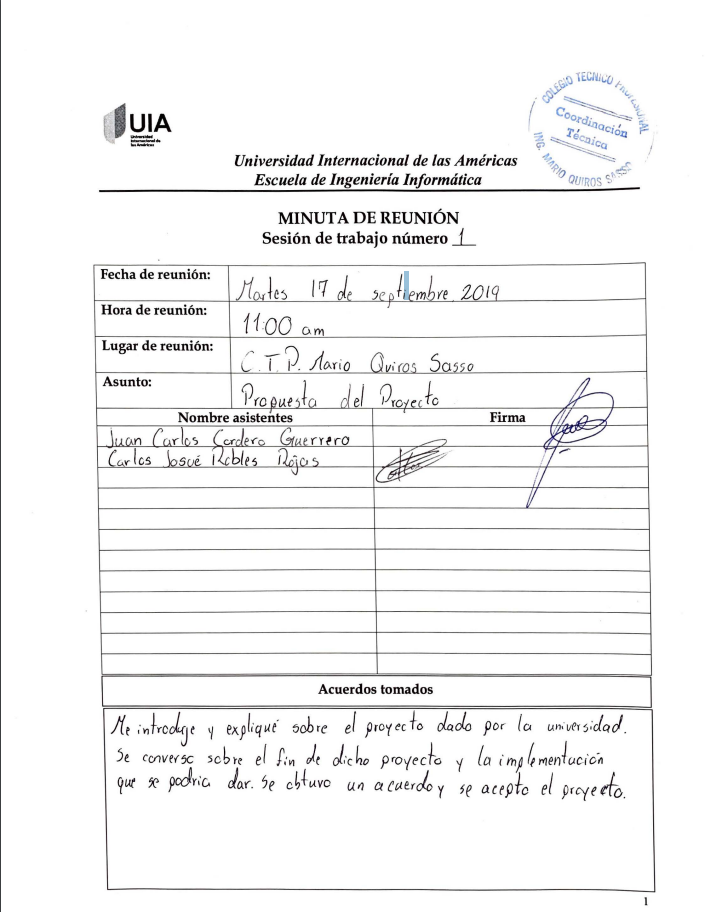 UIA
Universidad
Internacional de
las Américas
COLEGIO TECNICO PROFESIONAL
Coordinación
Técnica
ING. MARIO QUIROS SASSO
Universidad Internacional de las Américas
Escuela de Ingeniería Informática
MINUTA DE REUNIÓN
Sesión de trabajo número 1
Fecha de reunión: Martes 17 de septiembre 2019
Hora de reunión: 11:00 am
Lugar de reunión: C.T.P. Mario Quiros Sasso
Asunto: Propuesta del Proyecto
Nombre asistentes Firma
Juan Carlos Cordero Guerrero
Carlos Josué Robles Rojas
Acuerdos tomados
Me introduje y expliqué sobre el proyecto dado por la universidad.
Se converso sobre el fin de dicho proyecto y la implementación
que se podria dar. Se obtuvo un acuerdo y se acepto el proyecto.
1